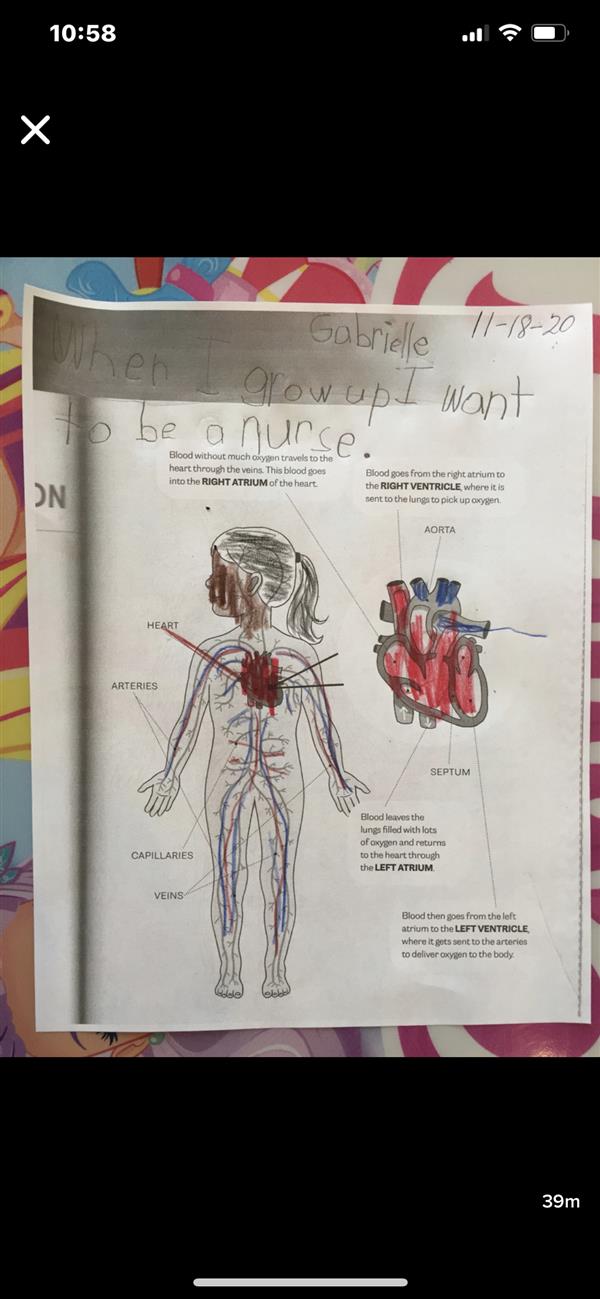 10:58
Gabrielle 11-18-20
When I grow up I want
to be a nurse.
Blood without much oxygen travels to the
heart through the veins. This blood goes
into the RIGHT ATRIUM of the heart.
Blood goes from the right atrium to
the RIGHT VENTRICLE, where it is
sent to the lungs to pick up oxygen.
ON
AORTA
HEART
ARTERIES
SEPTUM
Blood leaves the
lungs filled with lots
of oxygen and returns
to the heart through
the LEFT ATRIUM.
CAPILLARIES
VEINS
Blood then goes from the left
atrium to the LEFT VENTRICLE,
where it gets sent to the arteries
to deliver oxygen to the body.
39m